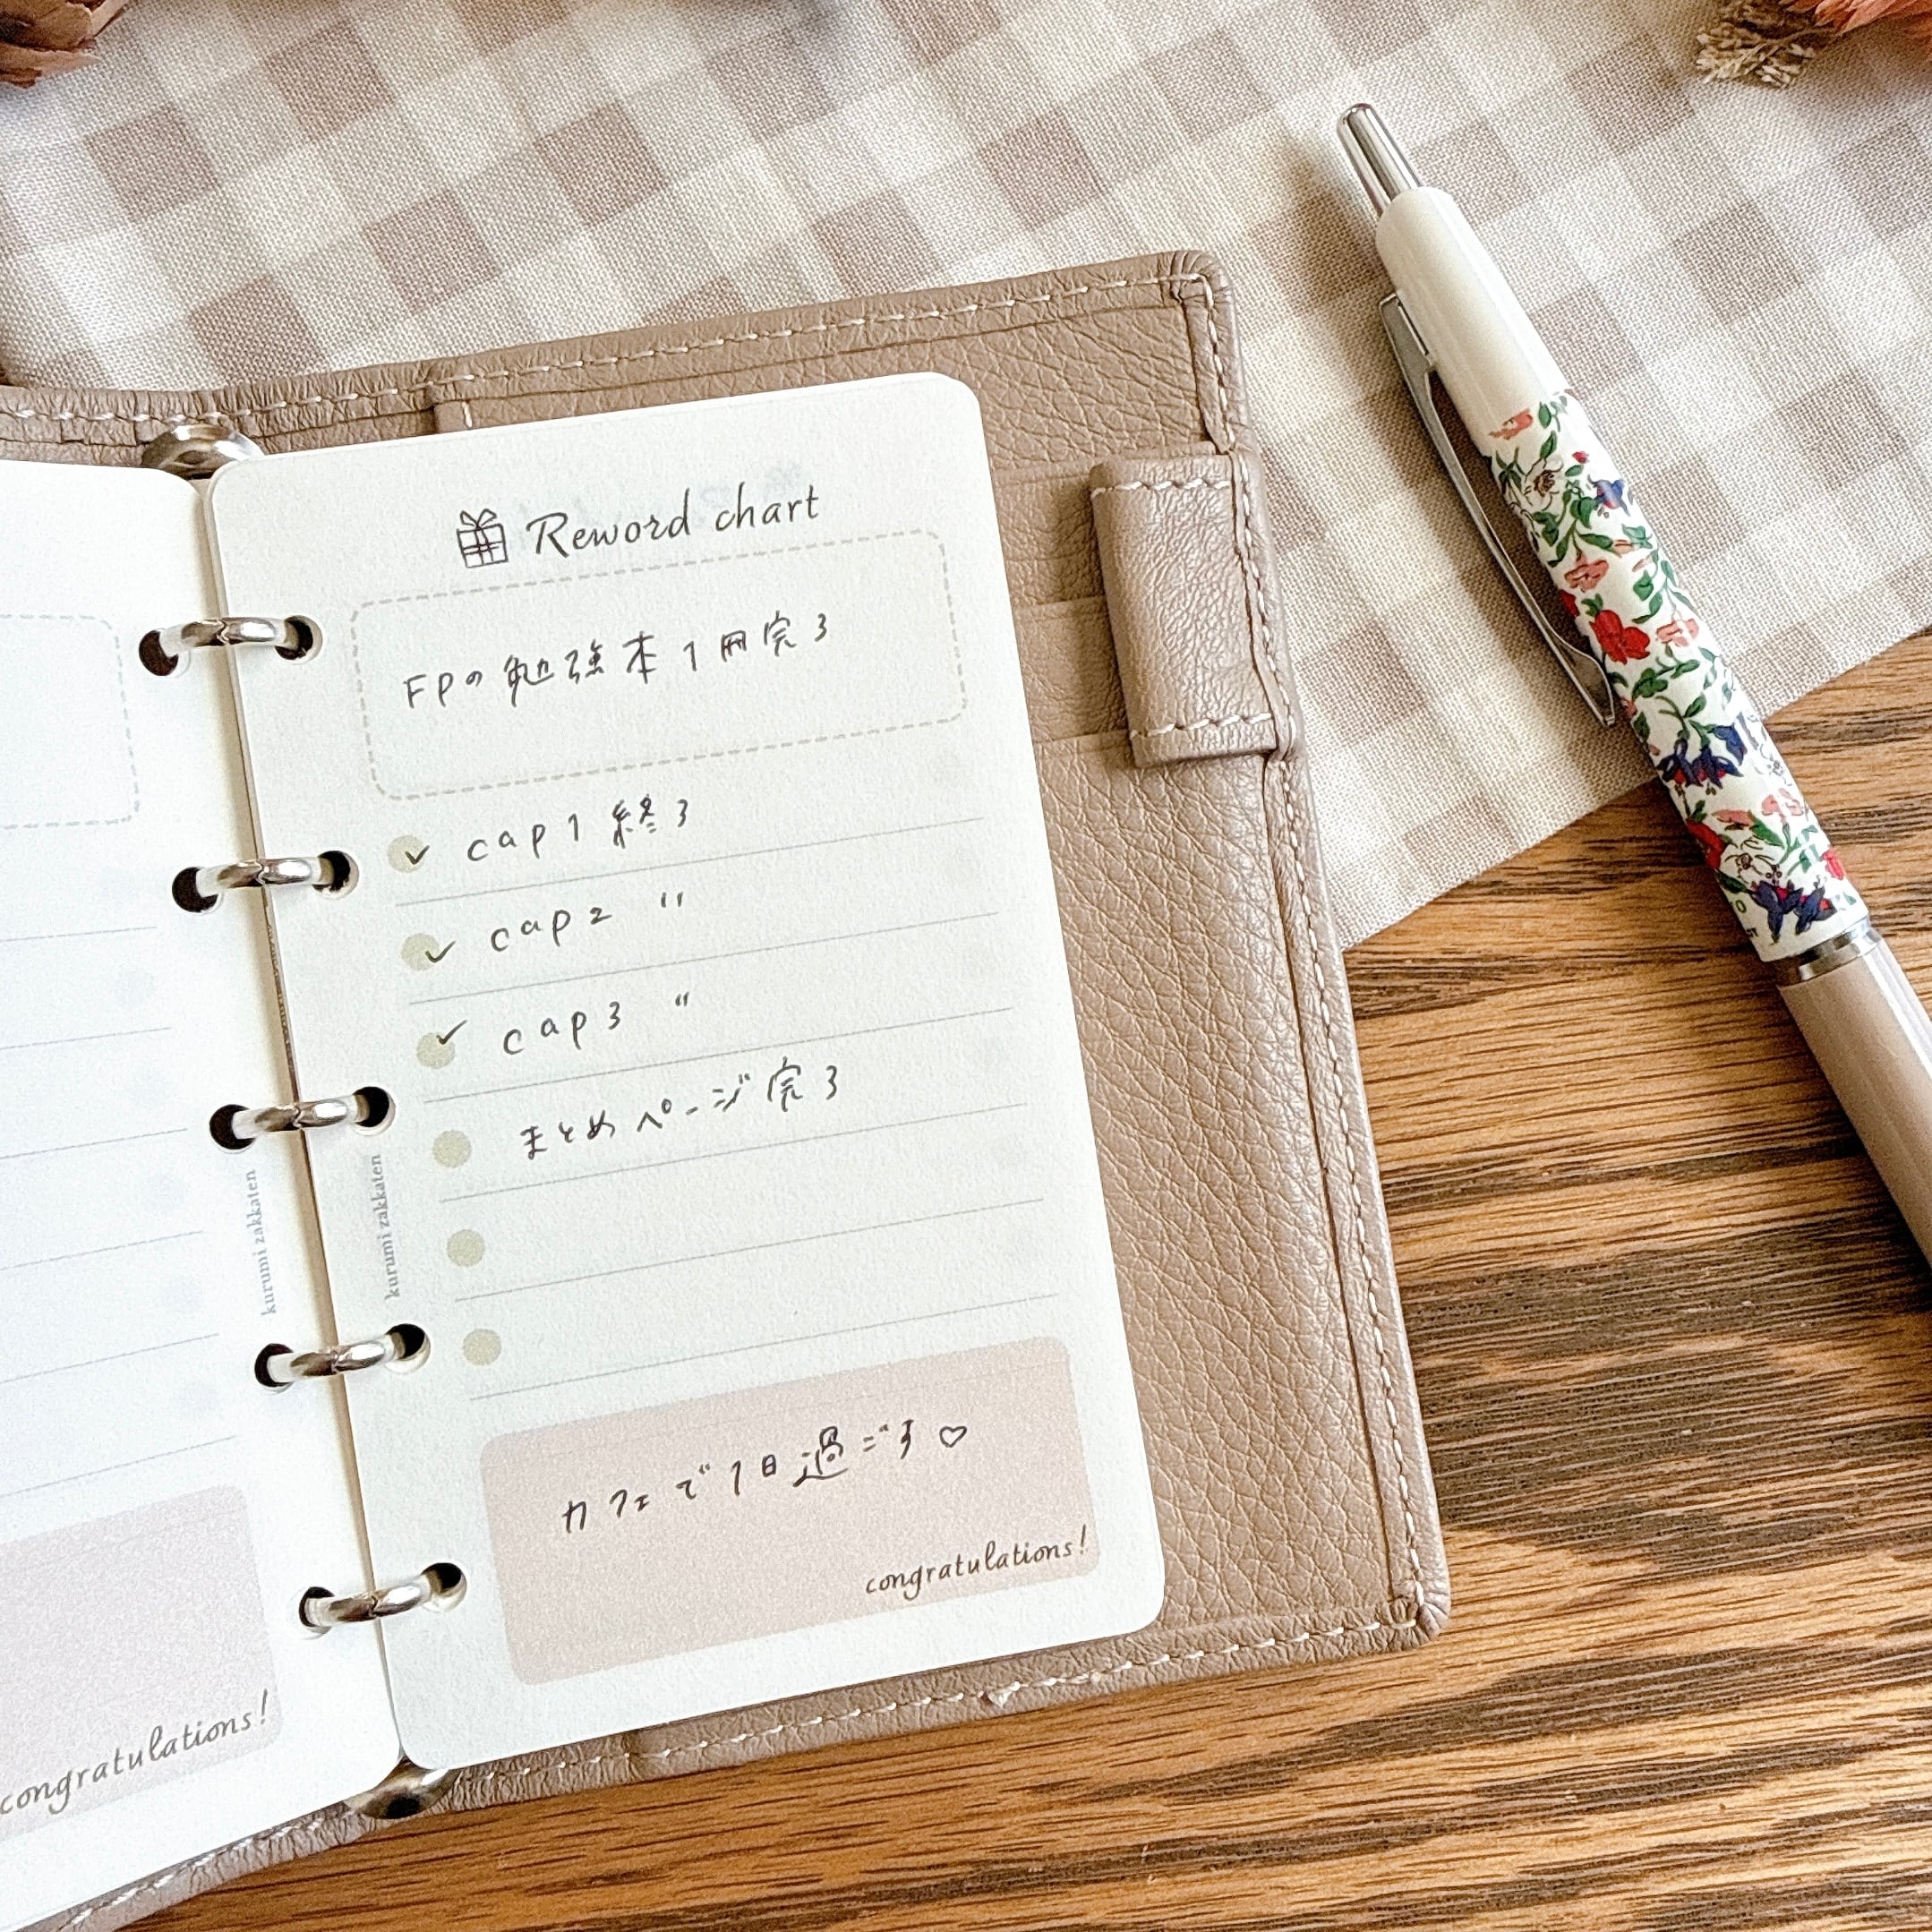 Reword chart
FPの勉強本1冊完了
cap1 終る
cap2 〃
cap3 〃
まとめページ完了
カフェで1日過ごす♡
congratulations!
kurumi zakkaten
kurumi zakkaten
congratulations!